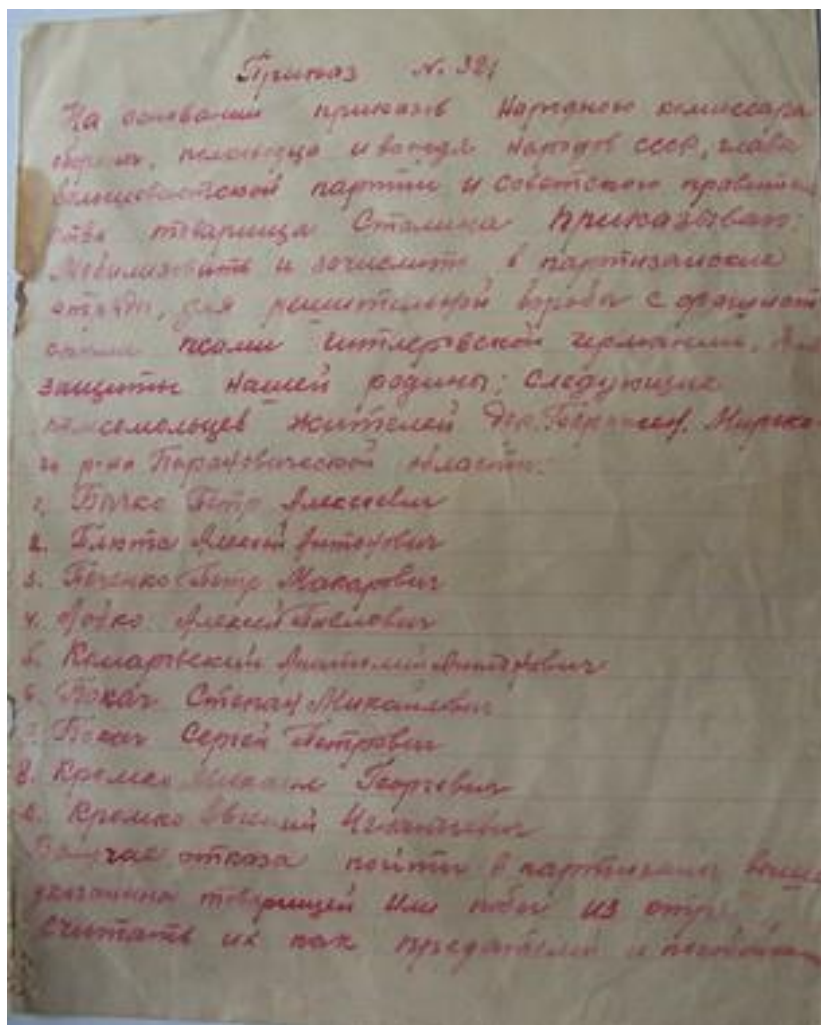 Приказ № 321
На основании приказов Народного комиссара
обороны, полководца и вождя народов СССР, глава
большевистской партии и Советского правитель
ства товарища Сталина Приказываю:
Мобилизовать и зачислить в партизанские
отряды, для решительной борьбы с
псами гитлеровской германии, для
защиты нашей родины; следующие
комсомольцев жителей дер. Мирско-
го р-на Барановической области:
1. Петр Алексеевич
2. Алексей Антонович
3. Петр Макарович
4. Алексей Павлович
5. Комаровский Анатолий Антонович
6. Степан Михайлович
7. Сергей Петрович
8. Кремко Михаил Георгиевич
9. Кремко Евгений
В случае отказа пойти в партизаны выше
указанных товарищей или побег из отря
считать их как предателей и